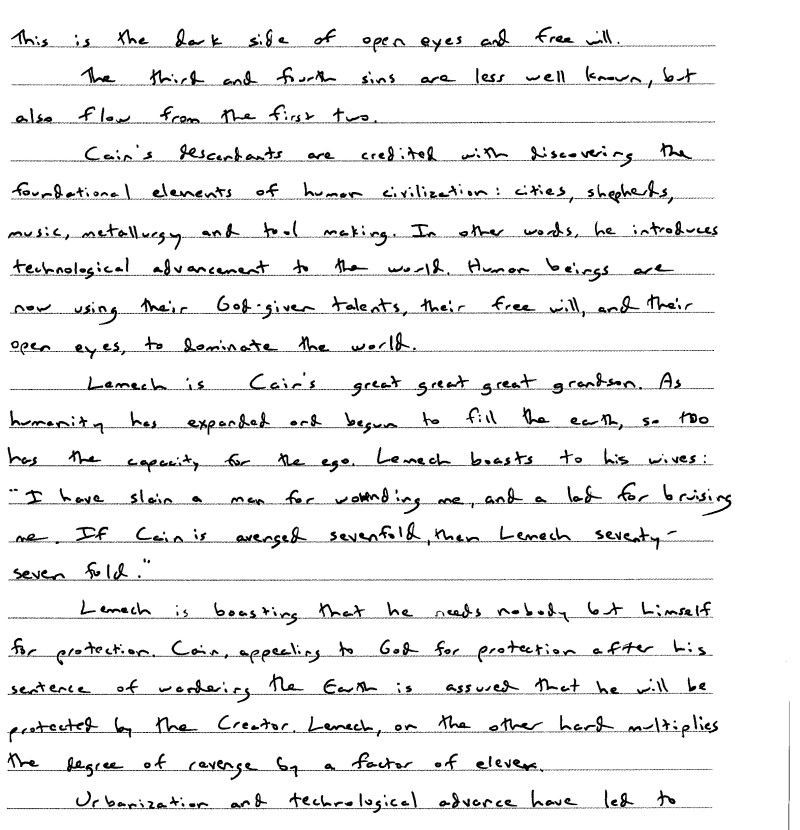 This is the dark side of open eyes and free will.
The third and fourth sins are less well known, but
also flow from the first two.
Cain's descendants are credited with discovering the
foundational elements of human civilization: cities, shepherds,
music, metallurgy and tool making. In other words, he introduces
technological advancement to the world. Human beings are
now using their God-given talents, their free will, and their
open eyes, to dominate the world.
Lemech is Cain's great great great grandson. As
humanity has expanded and begun to fill the earth, so too
has the capacity for the ego. Lemech boasts to his wives:
"I have slain a man for wounding me, and a lad for bruising
me. If Cain is avenged sevenfold, then Lemech seventy-
seven fold."
Lemech is boasting that he needs nobody but himself
for protection. Cain, appealing to God for protection after his
sentence of wandering the Earth is assured that he will be
protected by the Creator. Lemech, on the other hand multiplies
the degree of revenge by a factor of eleven.
Urbanization and technological advance have led to